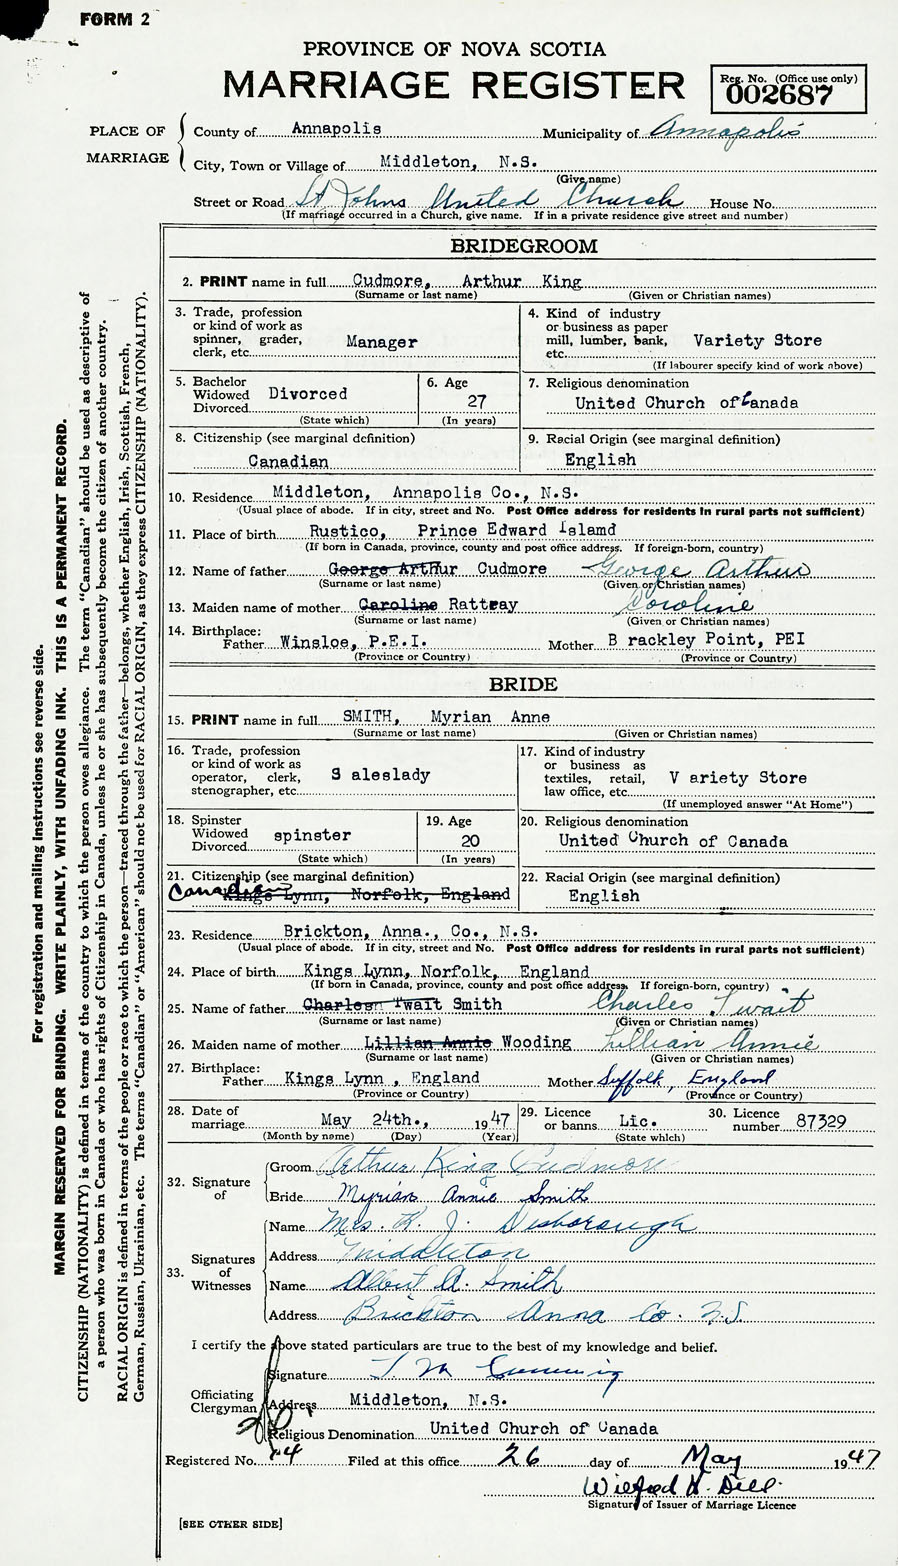 FORM 2
PROVINCE OF NOVA SCOTIA
MARRIAGE REGISTER
Reg. No. (Office use only)
002687
PLACE OF MARRIAGE
County of Annapolis Municipality of Annapolis
City, Town or Village of Middleton, N.S.
(Give name)
Street or Road St Johns United Church House No.
(If marriage occurred in a Church, give name. If in a private residence give street and number)
BRIDEGROOM
2. PRINT name in full Cudmore, Arthur King
(Surname or last name) (Given or Christian names)
3. Trade, profession or kind of work as spinner, grader, clerk, etc. Manager
4. Kind of industry or business as paper mill, lumber, bank, etc. Variety Store
(If labourer specify kind of work above)
5. Bachelor Widowed Divorced Divorced
(State which)
6. Age 27
(In years)
7. Religious denomination
United Church of Canada
8. Citizenship (see marginal definition)
Canadian
9. Racial Origin (see marginal definition)
English
10. Residence Middleton, Annapolis Co., N.S.
(Usual place of abode. If in city, street and No. Post Office address for residents in rural parts not sufficient)
11. Place of birth Rustico, Prince Edward Islamd
(If born in Canada, province, county and post office address. If foreign-born, country)
12. Name of father George Arthur Cudmore George Arthur
(Surname or last name) (Given or Christian names)
13. Maiden name of mother Caroline Rattray Caroline
(Surname or last name) (Given or Christian names)
14. Birthplace:
Father Winsloe, P.E.I. Mother B rackley Point, PEI
(Province or Country) (Province or Country)
BRIDE
15. PRINT name in full SMITH, Myrian Anne
(Surname or last name) (Given or Christian names)
16. Trade, profession or kind of work as operator, clerk, stenographer, etc. S aleslady
17. Kind of industry or business as textiles, retail, law office, etc. V ariety Store
(If unemployed answer "At Home")
18. Spinster Widowed Divorced spinster
(State which)
19. Age 20
(In years)
20. Religious denomination
United Church of Canada
21. Citizenship (see marginal definition)
Canadian Kings Lynn, Norfolk, England
22. Racial Origin (see marginal definition)
English
23. Residence Brickton, Anna., Co., N.S.
(Usual place of abode. If in city, street and No. Post Office address for residents in rural parts not sufficient)
24. Place of birth Kings Lynn, Norfolk, England
(If born in Canada, province, county and post office address. If foreign-born, country)
25. Name of father Charles Twait Smith Charles Twait
(Surname or last name) (Given or Christian names)
26. Maiden name of mother Lillian Annie Wooding Lillian Annie
(Surname or last name) (Given or Christian names)
27. Birthplace:
Father Kings Lynn , England Mother Suffolk, England
(Province or Country) (Province or Country)
28. Date of marriage May 24th., 1947
(Month by name) (Day) (Year)
29. Licence or banns Lic.
(State which)
30. Licence number 87329
32. Signature of
Groom Arthur King Cudmore
Bride Myrian Annie Smith
33. Signatures of Witnesses
Name Mrs. K. J. Desborough
Address Middleton
Name Albert A. Smith
Address Brickton Anna Co. N.S.
I certify the above stated particulars are true to the best of my knowledge and belief.
Officiating Clergyman
Signature
Address Middleton, N.S.
Religious Denomination United Church of Canada
Registered No. 14 Filed at this office 26 day of May 1947
Wilfred H. Dill
Signature of Issuer of Marriage Licence
[SEE OTHER SIDE]
For registration and mailing instructions see reverse side.
MARGIN RESERVED FOR BINDING. WRITE PLAINLY, WITH UNFADING INK. THIS IS A PERMANENT RECORD.
CITIZENSHIP (NATIONALITY) is defined in terms of the country to which the person owes allegiance. The term "Canadian" should be used as descriptive of
a person who was born in Canada or who has rights of Citizenship in Canada, unless he or she has subsequently become the citizen of another country.
RACIAL ORIGIN is defined in terms of the people or race to which the person—traced through the father—belongs, whether English, Irish, Scottish, French,
German, Russian, Ukrainian, etc. The terms "Canadian" or "American" should not be used for RACIAL ORIGIN, as they express CITIZENSHIP (NATIONALITY).